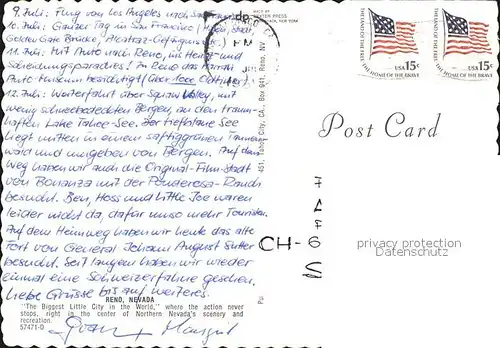 9. Juli: Flug von Los Angeles nach San Francisco
10. Juli: Ganzer Tag in San Francisco (
Golden Gate Brücke, Alcatraz-Gefängnis etc.)
11. Juli: Mit Auto nach Reno, ins Heirat- und
Scheidungsparadies! In Reno das Harrah
Auto-Museum besichtigt (über 1000 Oldtimer)
12. Juli: Weiterfahrt über Squaw Valley, mit
wenig schneebedeckten Bergen, an den traum-
haften Lake Tahoe-See. Der tiefblaue See
liegt mitten in einem saftiggrünen Tannen-
wald und umgeben von Bergen. Auf dem
Weg haben wir auch die Original-Film-Stadt
von Bonanza mit der Ponderosa-Ranch
besucht. Ben, Hoss und Little Joe waren
leider nicht da, dafür umso mehr Touristen.
Auf dem Heimweg haben wir heute das alte
Fort von General Johann August Sutter
besucht. Seit langem haben wir wieder
einmal eine Schweizerfahne gesehen.
Liebe Grüsse bis auf weiteres.
RENO, NEVADA
"The Biggest Little City in the World," where the action never
stops, right in the center of Northern Nevada's scenery and
recreation.
57471-D
PM
451, Tahoe City, CA. Box 941, Reno, NV
THE LAND OF THE FREE
USA 15c
THE HOME OF THE BRAVE
THE LAND OF THE FREE
USA 15c
THE HOME OF THE BRAVE
Post Card
CH-6
privacy protection
Datenschutz